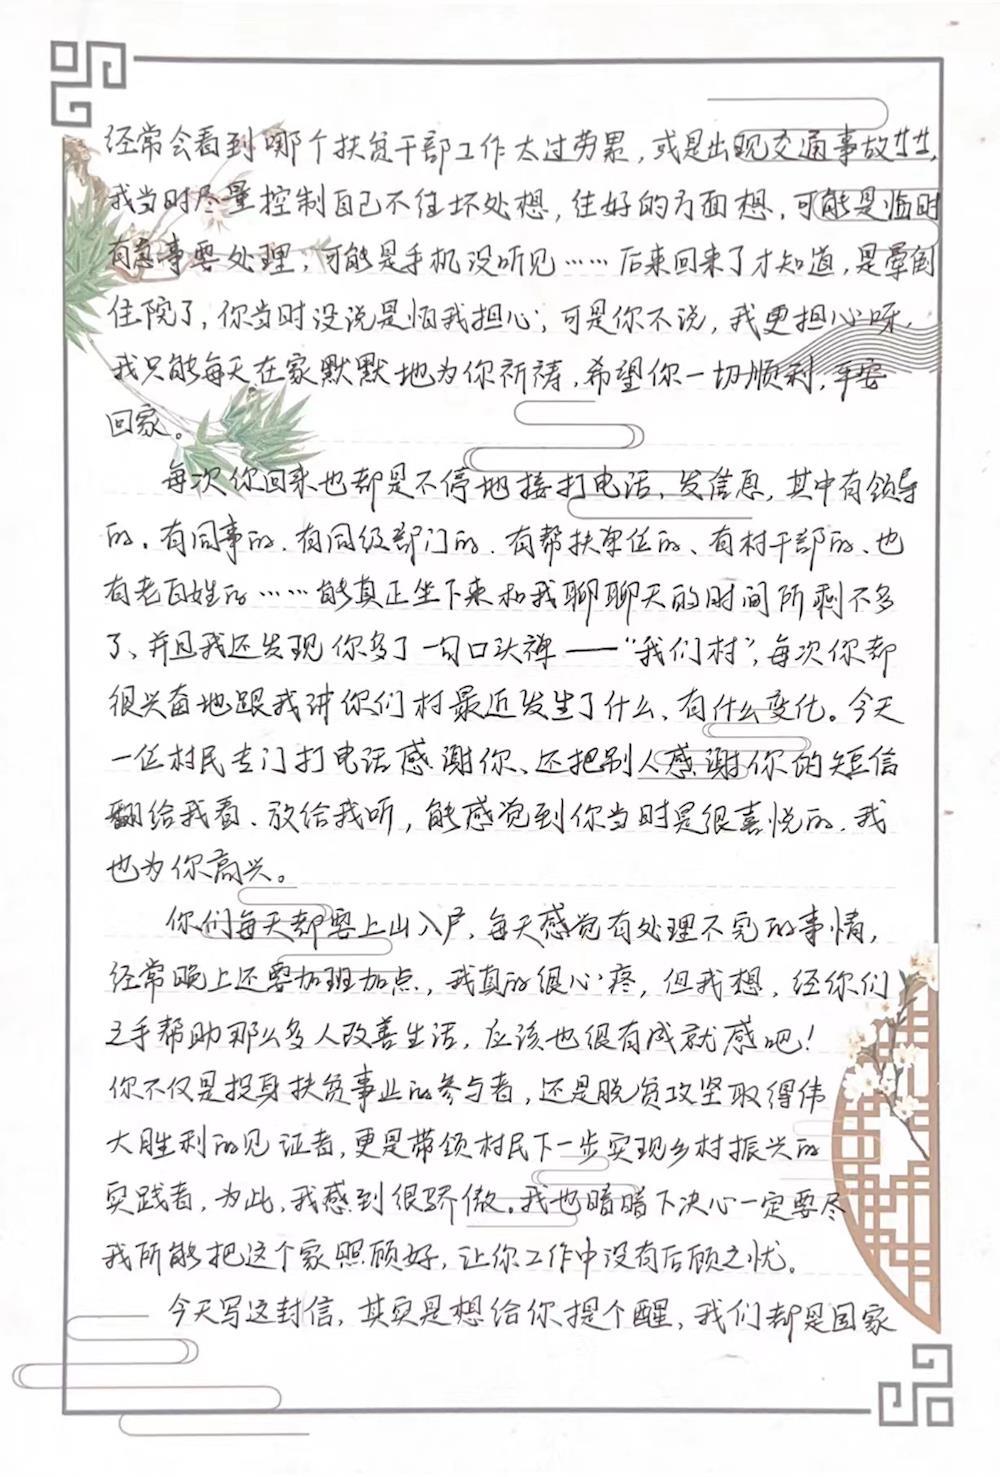 经常会看到哪个扶贫干部工作太过劳累，或是出现交通事故牺牲，
我当时尽量控制自己不往坏处想，往好的方面想，可能是临时
有急事要处理，可能是手机没听见……后来回来了才知道，是晕倒
住院了，你当时没说是怕我担心；可是你不说，我更担心呀，
我只能每天在家默默地为你祈祷，希望你一切顺利，平安
回家。
每次你回来也都是不停地接打电话、发信息，其中有领导
的、有同事的、有同级部门的、有帮扶单位的、有村干部的、也
有老百姓的……能真正坐下来和我聊聊天的时间所剩不多
了、并且我还发现你多了一句口头禅——“我们村”，每次你都
很兴奋地跟我讲你们村最近发生了什么、有什么变化。今天
一位村民专门打电话感谢你、还把别人感谢你的短信
翻给我看、放给我听，能感觉到你当时是很喜悦的，我
也为你高兴。
你们每天都要上山入户，每天感觉有处理不完的事情，
经常晚上还要加班加点，我真的很心疼，但我想，经你们
之手帮助那么多人改善生活，应该也很有成就感吧！
你不仅是投身扶贫事业的参与者，还是脱贫攻坚取得伟
大胜利的见证者，更是带领村民下一步实现乡村振兴的
实践者，为此，我感到很骄傲。我也暗暗下决心一定要尽
我所能把这个家照顾好，让你工作中没有后顾之忧。
今天写这封信，其实是想给你提个醒，我们都是国家